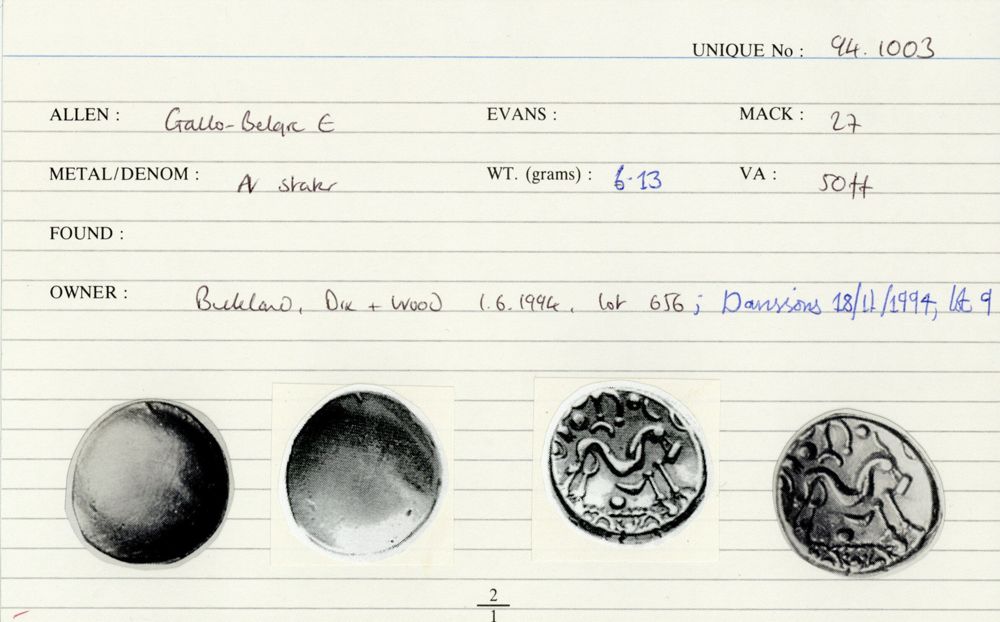 UNIQUE No : 94.1003
ALLEN : Gallo-Belgic E EVANS : MACK : 27
METAL/DENOM : AV stater WT. (grams) : 6.13 VA : 50ff
FOUND :
OWNER : Buckland, Dix + Wood 1.6.1994, lot 656; 18/11/1994, lot 9
2
1